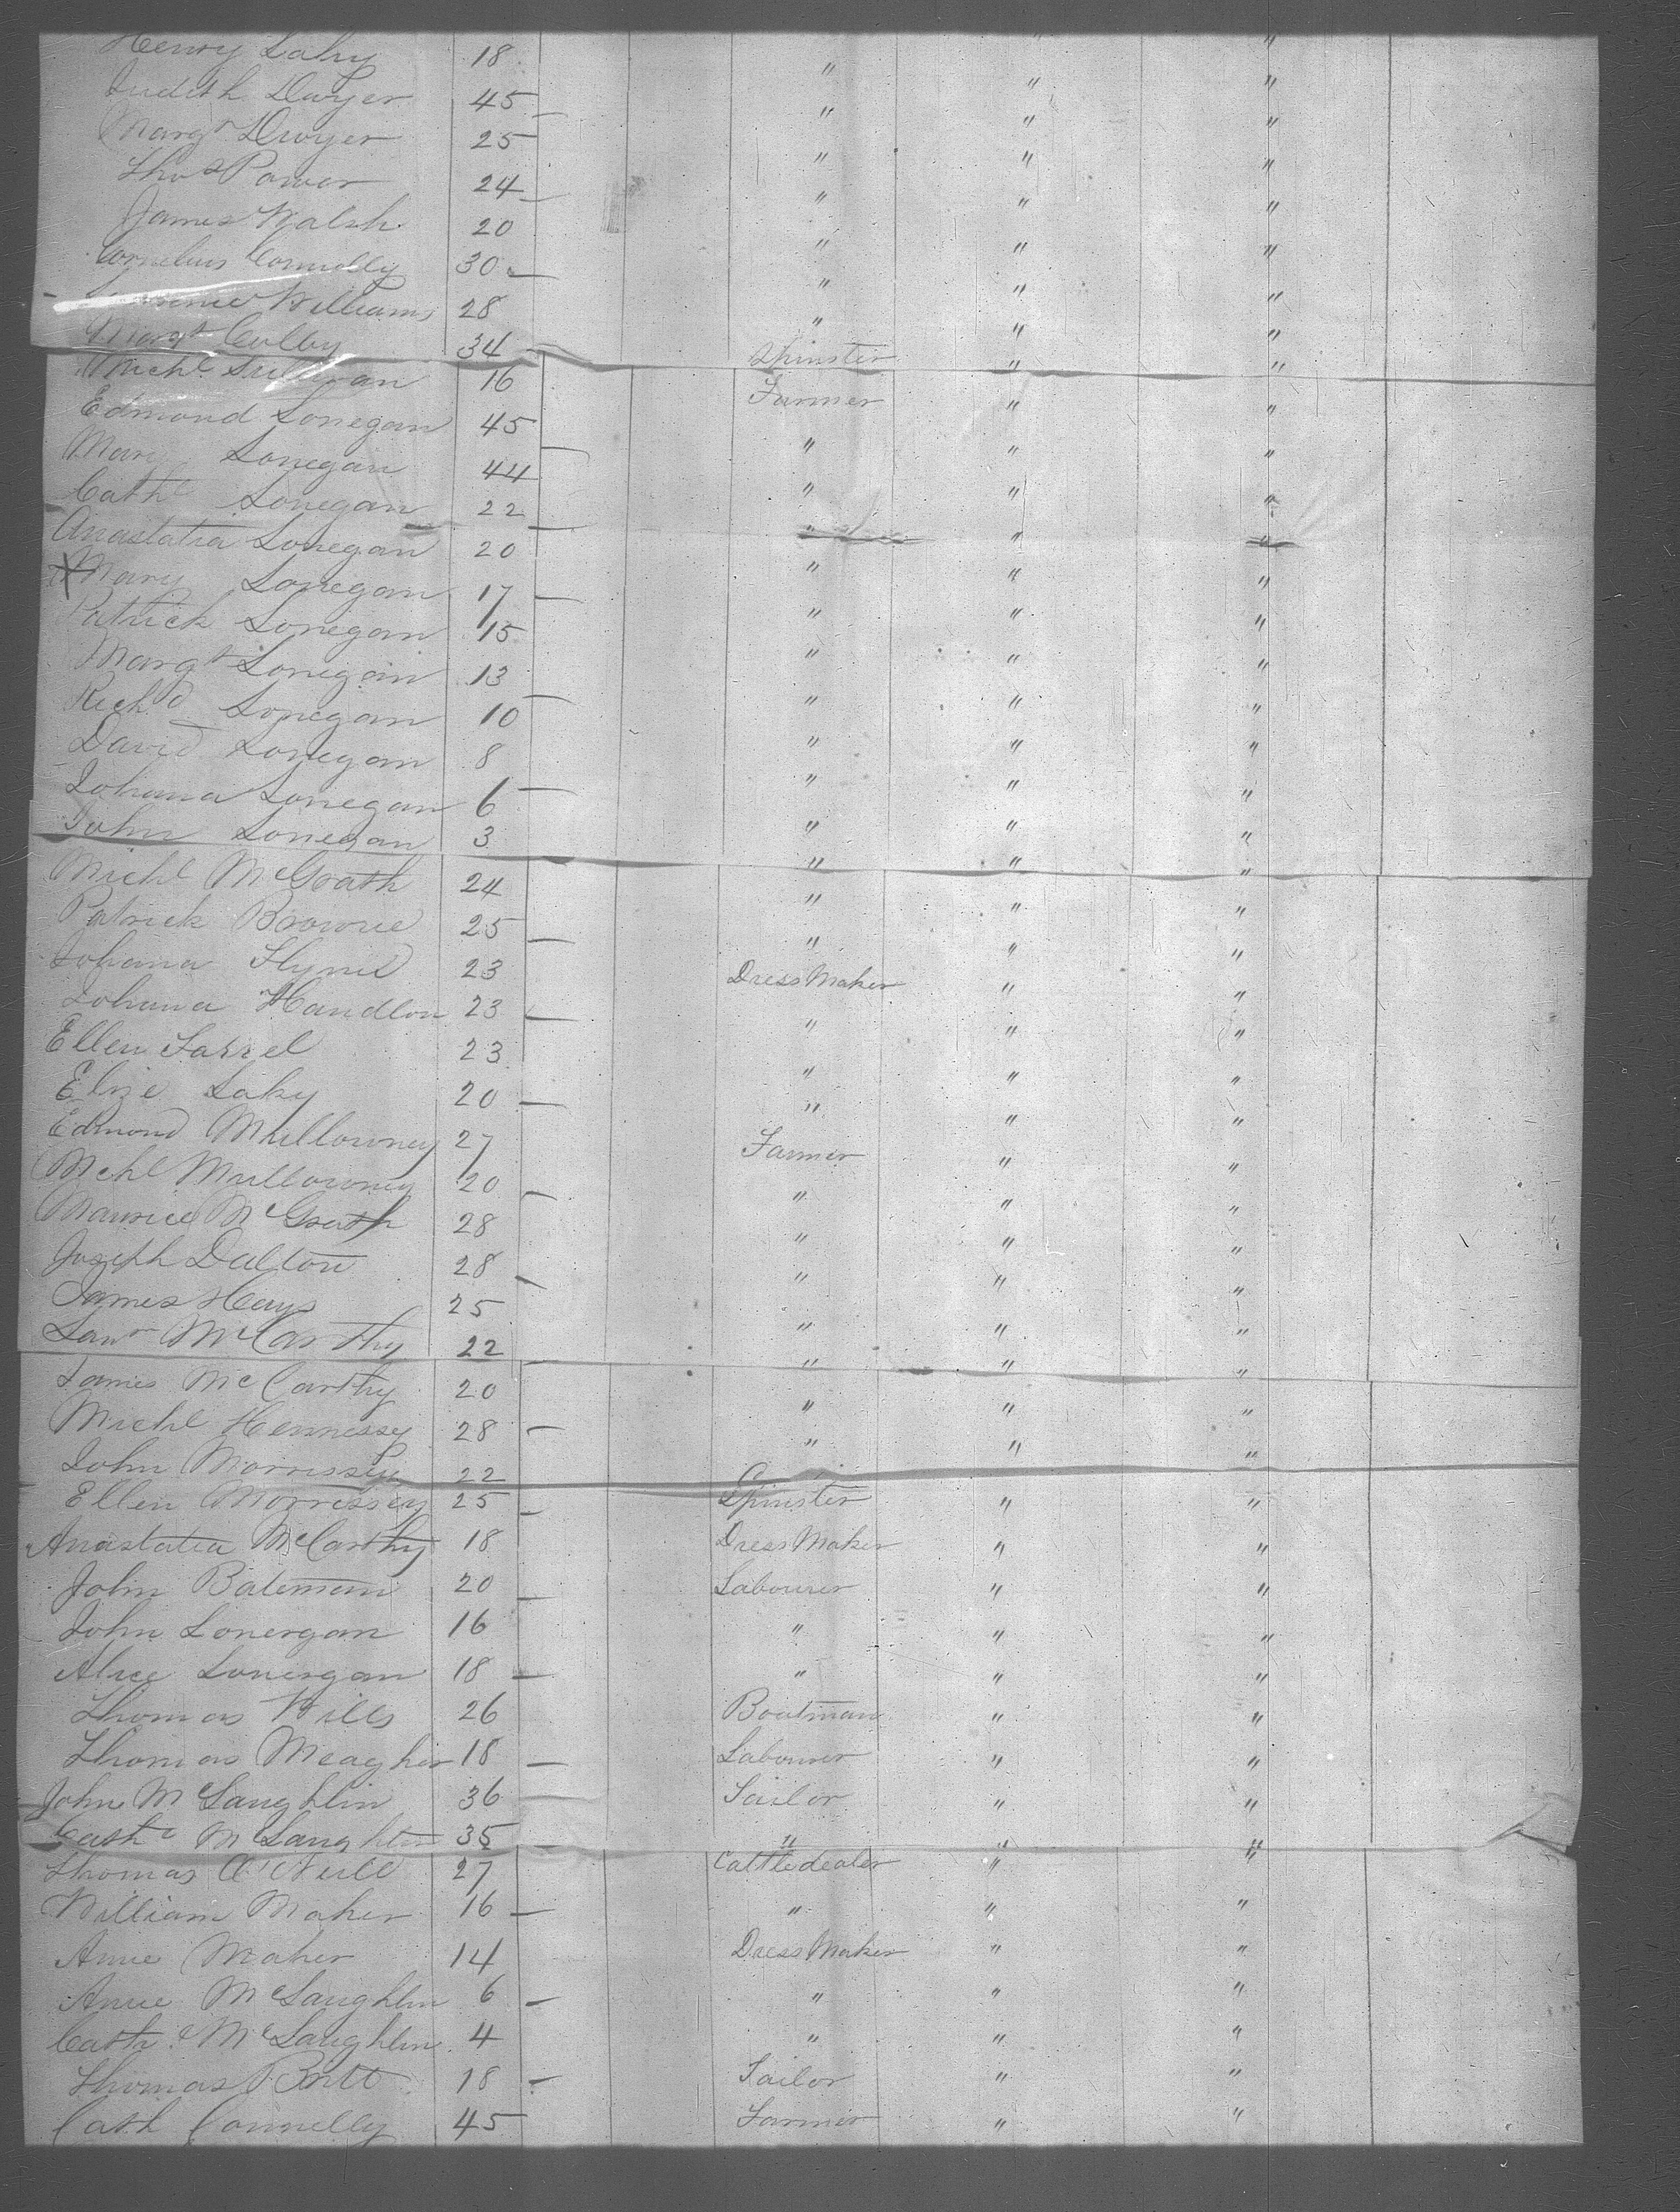 Henry Lahy 18 " " "
Judith Dwyer 45 " " "
Margt Dwyer 25 " " "
Thos Power 24 " " "
James Walsh 20 " " "
Cornelius Connolly 30 " " "
Williams 28 " " "
Margt Culby 34 Spinster " "
Michl Sulivan 16 Farmer " "
Edmond Lonegan 45 " " "
Mary Lonegan 44 " " "
Cathe Lonegan 22 " " "
Anastatia Lonegan 20 " " "
X Mary Lonegan 17 " " "
Patrick Lonegan 15 " " "
Margt Lonegan 13 " " "
Richd Lonegan 10 " " "
David Lonegan 8 " " "
Johana Lonegan 6 " " "
John Lonegan 3 " " "
Michl McGrath 24 " " "
Patrick Browne 25 " " "
Johana Flynn 23 Dress Maker " "
Johana Handlon 23 " " "
Ellen Farrel 23 " " "
Elize Lahy 20 " " "
Edmond Mullowney 27 Farmer " "
Michl Mullowney 20 " " "
Maurice McGrath 28 " " "
Joseph Dalton 28 " " "
James Hays 25 " " "
Lawr McCarthy 22 " " "
James McCarthy 20 " " "
Michl Hennessy 28 " " "
John Morrissey 22
Ellen Morrissey 25 Spinster " "
Anastatia McCarthy 18 Dress Maker " "
John Bateman 20 Labourer " "
John Lonergan 16 " " "
Alice Lonergan 18 " " "
Thomas Wills 26 Boatman " "
Thomas Meagher 18 Labourer " "
John McLaughlin 36 Tailor " "
Cathe McLaughlin 35 " " "
Thomas O'Neill 27 Cattledealer " "
William Maher 16 " " "
Anne Maher 14 Dress Maker " "
Anne McLaughlin 6 " " "
Cathe McLaughlin 4 " " "
Thomas Britt 18 Tailor " "
Cath Connelly 45 Farmer " "